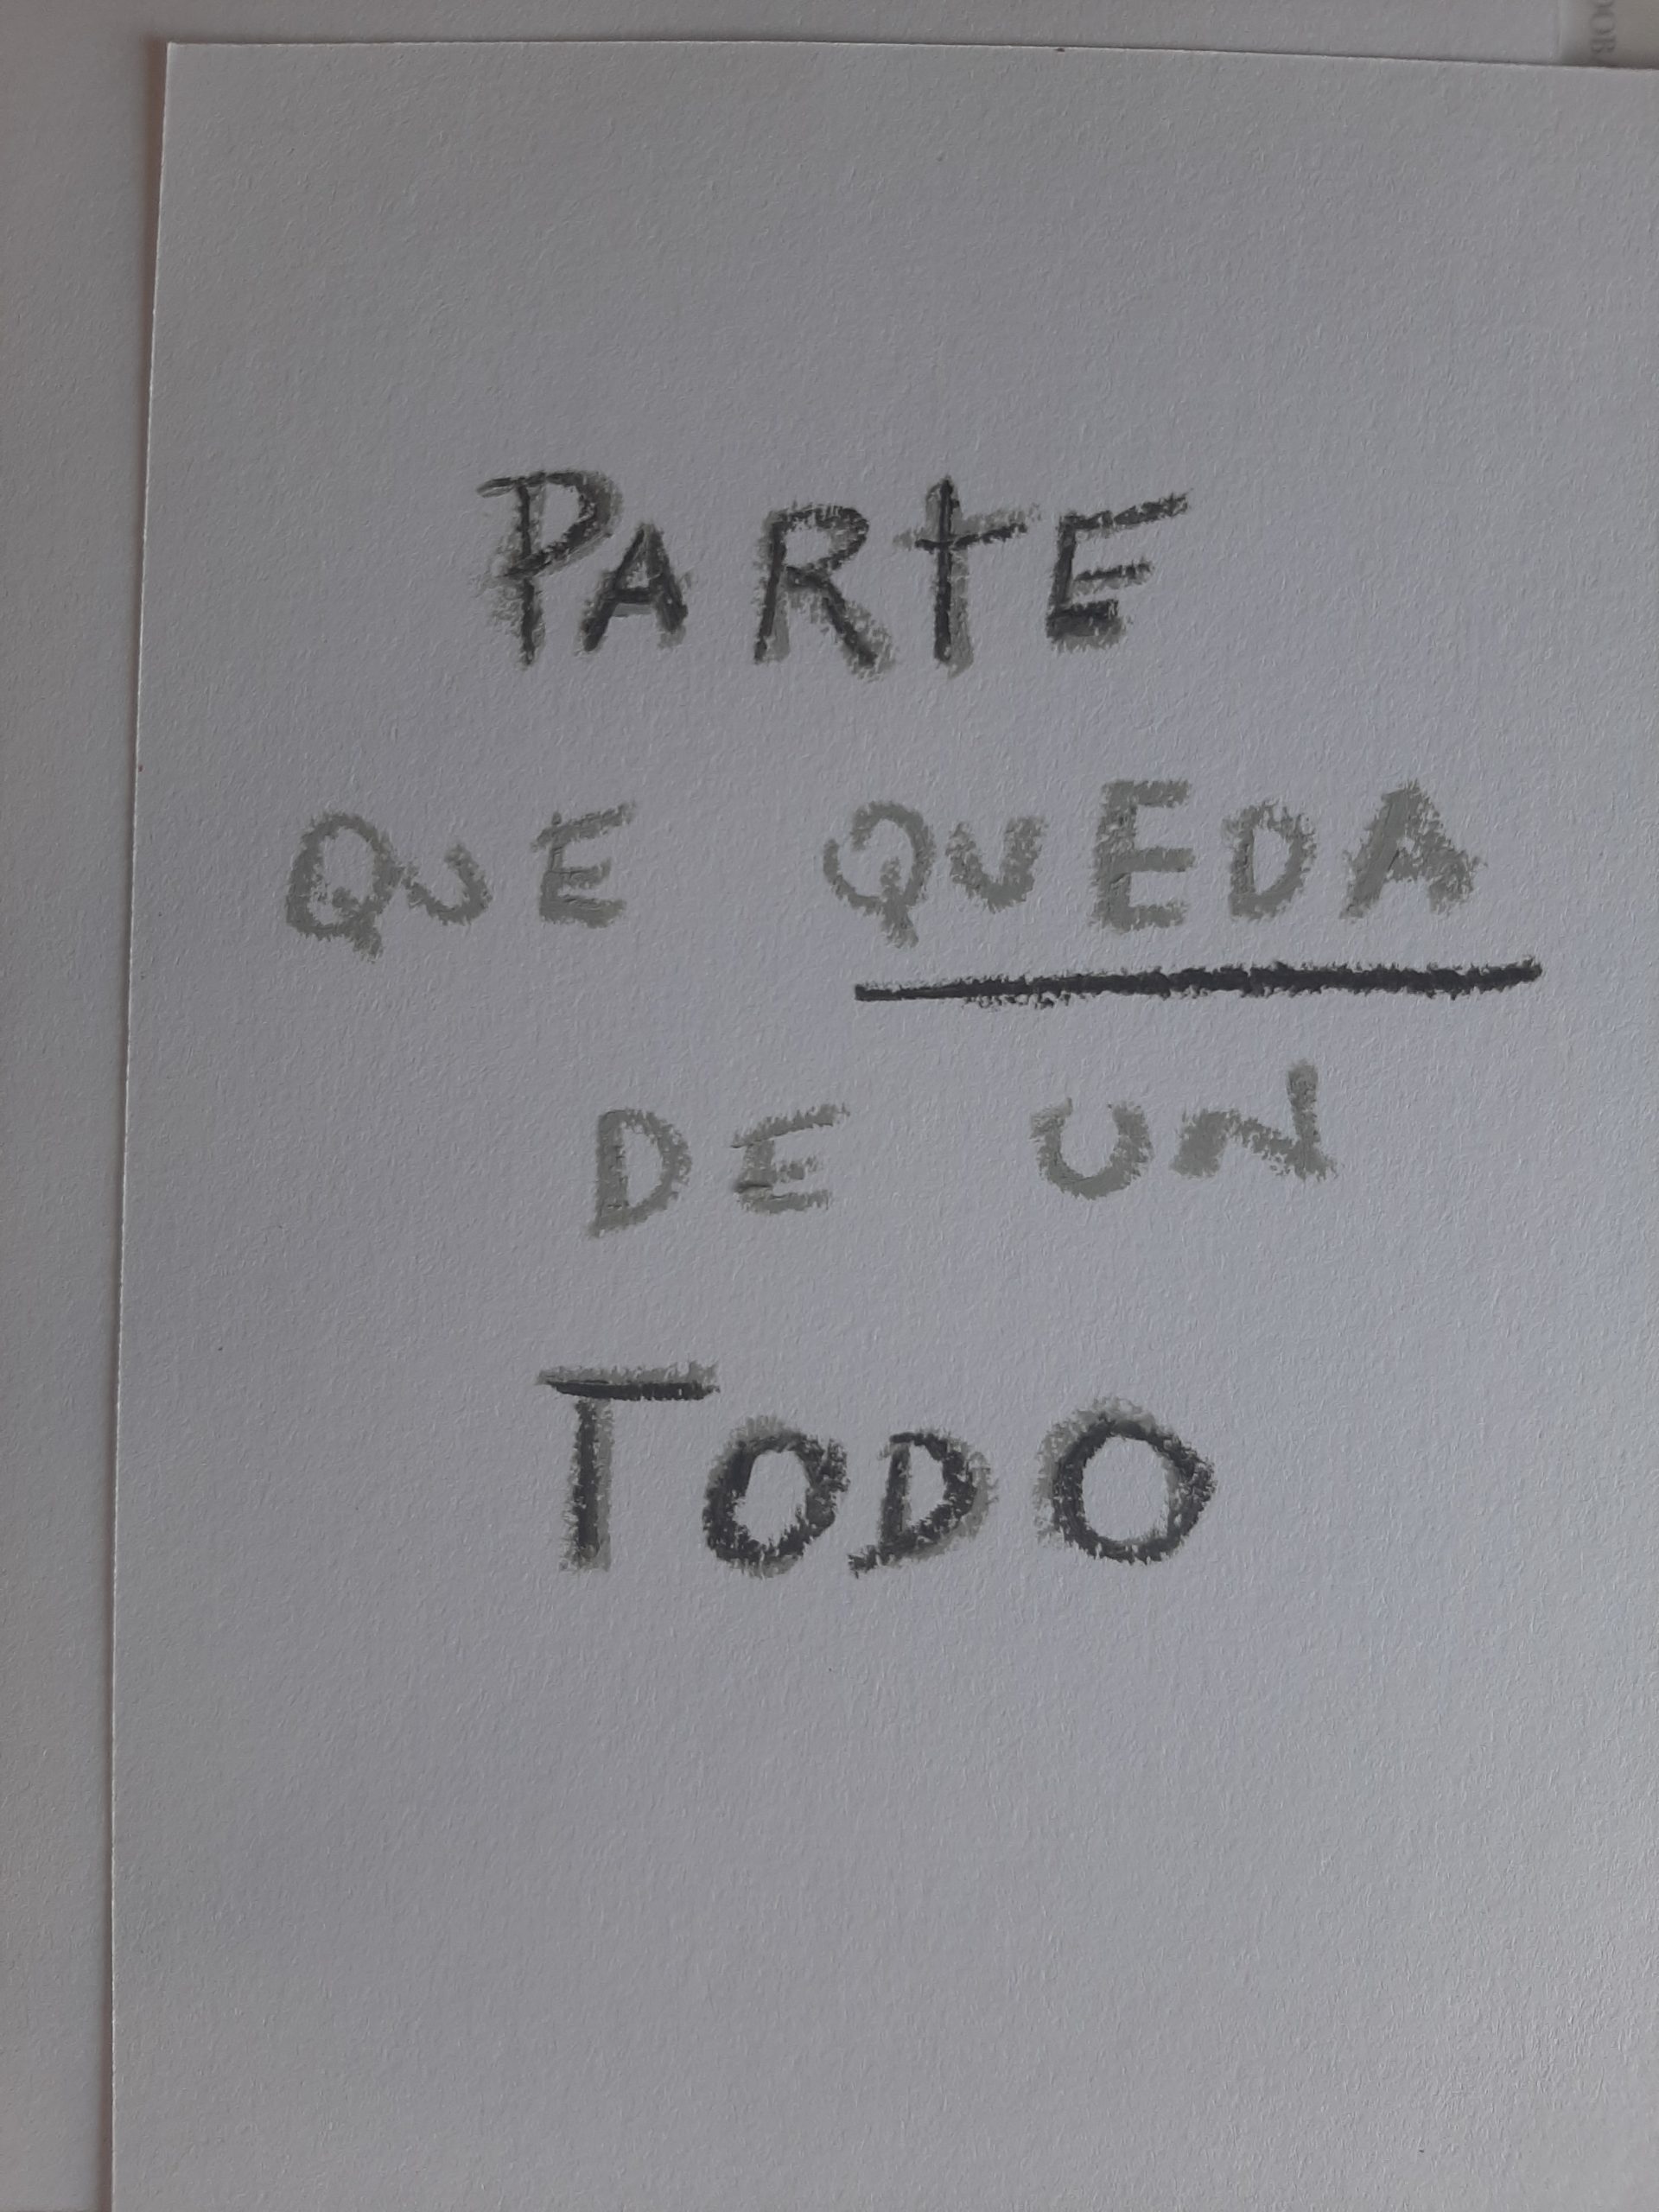 PARtE
QUE QUEDA
DE UN
TODO